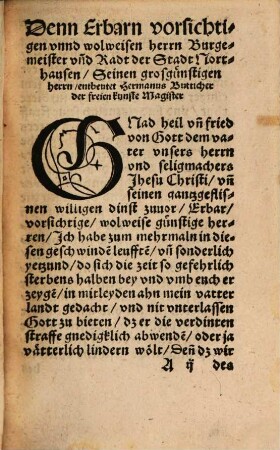 Denn Erbarn vorsichti-
gen vnnd wolweisen herrn Burge-
meister vñ Radt der Stadt Nort-
hausen / Seinen grosgünstigen
herrn / entbeutet Hermanus Butticher
der freien kunste Magister
GNad heil vñ fried
von Gott dem va-
ter vnsers herrn
vnd seligmachers
Jhesu Christi / vñ
seinen gantzgeflis-
nen willigen dinst zuuor / Erbar /
vorsichtige / wolweise günstige her-
ren / Ich habe zum mehrmaln in die-
sen geschwindẽ leufftẽ / vñ sonderlich
yetzund / do sich die zeit so gefehrlich
sterbens halben bey vnd vmb euch er
zeygẽ / in mitleyden ahn mein vatter
landt gedacht / vnd nit vnterlassen
Gott zu bieten / dz er die verdinten
straffe gnedigklich abwendẽ / oder ja
vätterlich lindern wölt / Deñ dz wir
A ij des